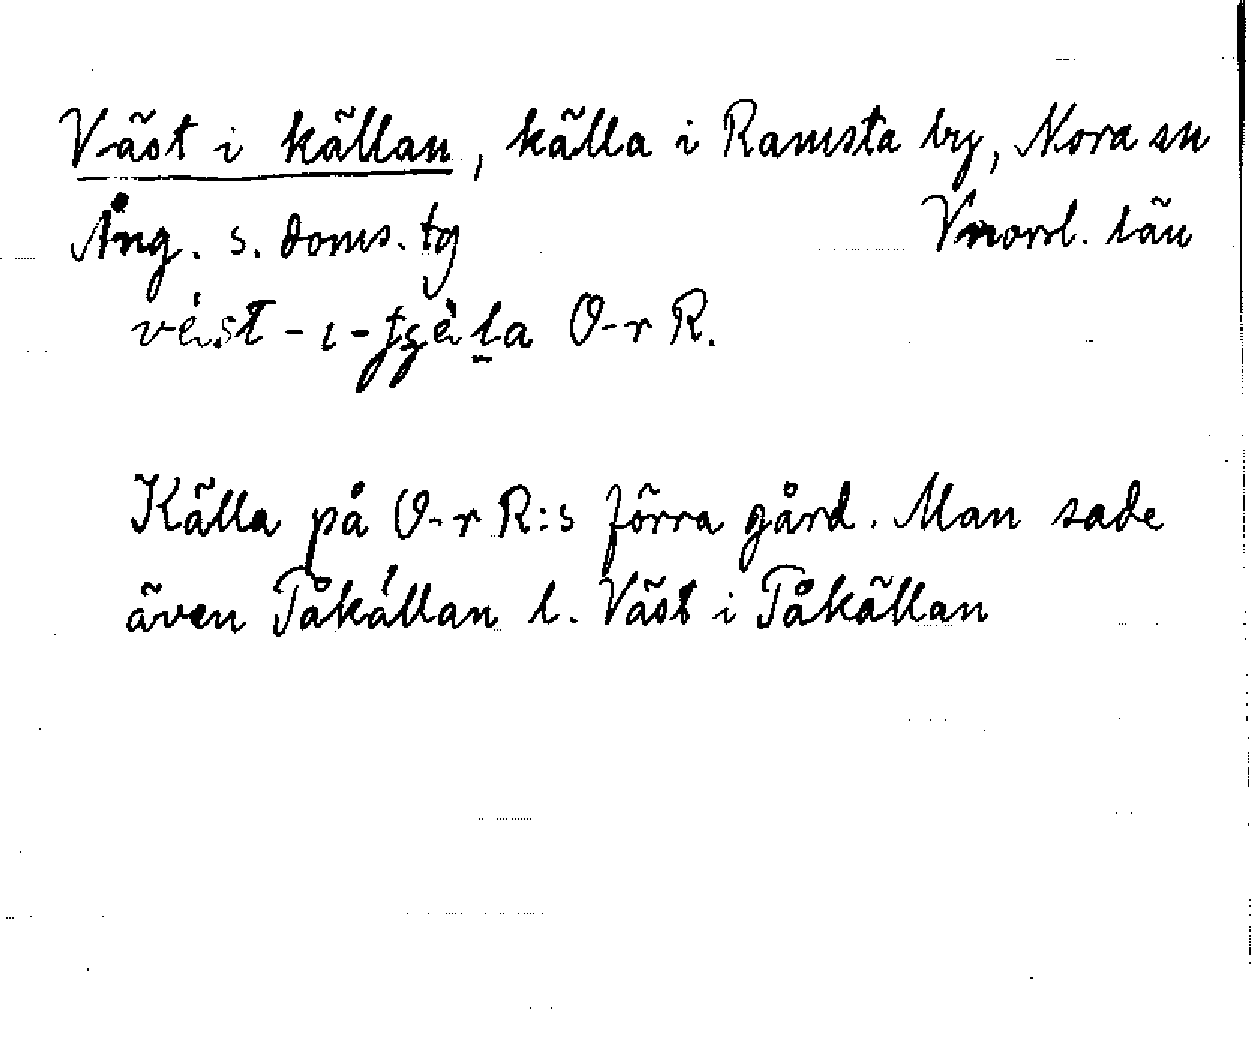 Väst i källan, källa i Ramsta by, Nora sn
Ång. s. doms. tg Vnorrl. län
vést-ı-tʂèḷa O-r R.
Källa på O-r R:s förra gård. Man sade
även Tåkällan l. Väst i Tåkällan